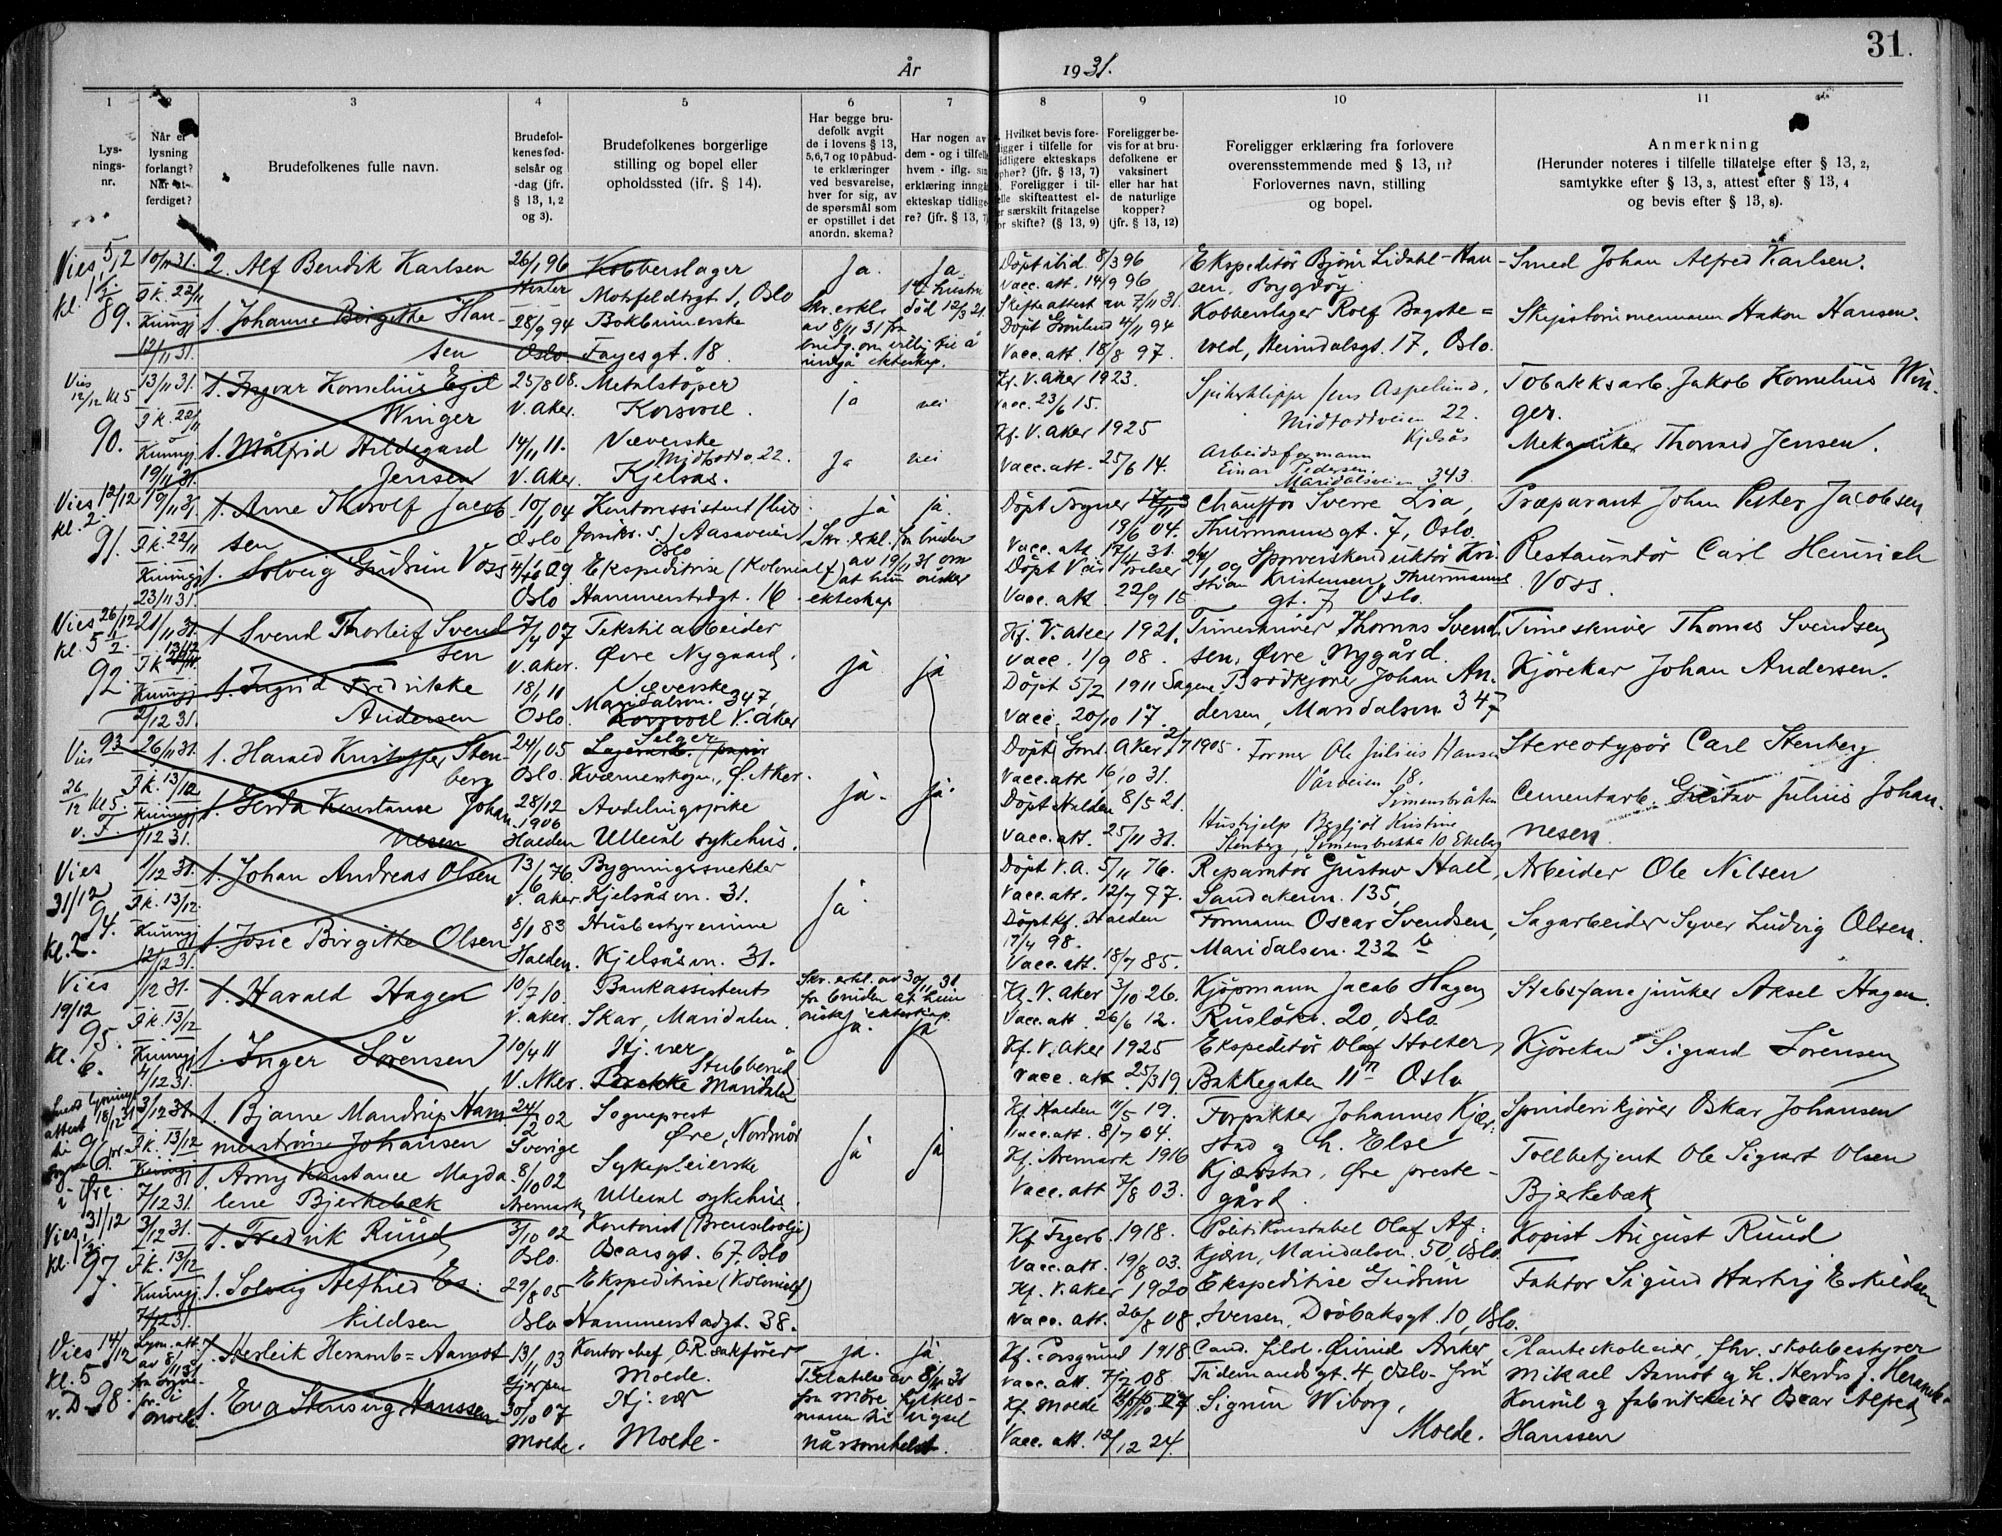 31.
År 1931.
1 2 3 4 5 6 7 8 9 10 11
Lys-
nings-
nr.
Når er
lysning
forlangt?
Når ut-
ferdiget?
Brudefolkenes fulle navn.
Brudefol-
kenes fød-
selsår og
-dag (jfr.
§ 13, 1, 2
og 3).
Brudefolkenes borgerlige
stilling og bopel eller
opholdssted (ifr. § 14).
Har begge bru-
defolk avgit
de i lovens § 13,
5,6,7 og 10 påbud-
te erklæringer
ved besvarelse,
hver for sig, av
de spørsmål som
er opstillet i det
anordn. skema?
Har nogen av
dem - og i tilfelle
hvem - iflg. sin
erklæring inngå
ekteskap tidlige-
re? (jfr. § 13, 7
Hvilket bevis fore-
ligger i tilfelle for
tidligere ekteskaps
ophør? (jfr. § 13, 7)
Foreligger i til-
felle skifteattest el-
er særskilt fritagelse
for skifte? (§ 13, 9)
Foreligger be-
vis for at bru-
defolkene er
vaksinert
eller har hat
de naturlige
kopper?
(jfr. § 13, 12)
Foreligger erklæring fra forlovere
overensstemmende med § 13, 11?
Forlovernes navn, stilling
og bopel.
Anmerkning
(Herunder noteres i tilfelle tillatelse efter § 13, 2,
samtykke efter § 13, 3, attest efter § 13, 4
og bevis efter § 13, 8).
Vies 5/12
kl. 1½
89.
10/11 31.
Fk. 22/11
Kunngj.
12/11 31.
2. Alf Bendik Karlsen
1. Johanne Birgitte Han-
sen
26/1 96
28/9 94
Oslo
Kobberslager
Motzfeldtsgt 1, Oslo
Bokbinnerske
Fayesgt. 18.
Ja.
Skr. erkl.
av 8/11 31 fra
brudg. om villig til å
inngå ekteskap.
Ja.
1ste hustru
død 12/3 21.
Døpt 8/3 96
Vacc. att. 14/9 96
Skifteattest av 7/11 31.
Døpt Grønland 4/11 94
Vacc. att. 18/8 97.
Ekspeditør Bjørn Lidahl-Han-
sen, Bygdøy
Kobberslager Rolf Bagste=
vold, Heimdalsgt. 17, Oslo.
Smed Johan Alfred Karlsen.
Skipstømmermann Hakon Hansen.
Vies
12/12 kl 5
90.
13/11 31.
Fk. 22/11
Kunngj.
19/11 31.
1. Ingvar Kornelius Egil
Winger
1. Målfrid Hildegard
Jensen
25/8 08.
V. Aker.
14/11 11.
V. Aker.
Metalstøper
Korsvoll.
Væverske
Midtoddv. 22.
Kjelsås.
ja
nei
ja
nei
Kf. V. Aker 1923.
Vacc. 23/6 15.
Kf. V. Aker 1925
Vacc. att. 25/6 14.
Spikerklipper Jens Aspelund,
Midtoddveien 22.
Kjelsås
Arbeidsformann
Einar Pedersen.
Maridalsveien 343.
Tobakksarb. Jakob Kornelius Win-
ger.
Mekaniker Thorvald Jensen.
Vies 12/12
kl. 2.
91.
19/11 31.
Fk. 22/11
Kunngj.
23/11 31.
1. Arne Thorolf Jacob-
sen
1. Solveig Gudrun Voss
10/1 04
Oslo
Oslo
Kontorassistent
Aasaveien
Oslo
Ekspeditrise (Kolonial)
Hammerstadgt. 16.
ja
ja.
Skr. erkl. fra bruden
av 19/11 31 om
at hun ønsker
ekteskap
Døpt Fagner
19/6 04.
Vacc. att. 17/11 31.
Vacc. att. 22/9 15
Chauffør Sverre Lia,
Thurmannsgt. 7, Oslo.
24/1 09 Sporveiskonduktør Kri-
stian Kristensen, Thurmanns
gt. 7 Oslo.
Præparant Johan Peter Jacobsen
Restauratør Carl Heinrich
Voss.
Vies 26/12
kl. 5½.
92.
21/11 31.
Fk. 13/12
Kunngj.
2/12 31.
1. Svend Thorleif Svend
sen
1. Ingrid Fredrikke
Andersen
7/4 07
V. Aker.
18/1 11
Oslo.
Tekstilarbeider
Øvre Nygaard.
Væverske
Maridalsvn. 347,
Korsvoll V. Aker
ja
ja
Kf. V. Aker 1921.
Vacc. 1/9 08.
Døpt 5/2 1911 Sagene
Vacc. 20/10 17.
Timeskriver Thomas Svend-
sen, Øvre Nygård.
Brødkjører Johan An-
dersen, Maridalsvn. 347
Timeskriver Thomas Svendsen
Kjørekar Johan Andersen.
93
Vies
26/12 kl 5.
v. F.
26/11 31.
Fk. 13/12
Kunngj.
1/12 31.
1. Harald Kristoffer Sten-
berg
1. Gerda Konstanse Johan
nesen
24/1 05
Oslo.
28/12
1906
Halden
Selger
Lagerarb. (papir
Kværnerbyen, Ø. Aker.
Avdelingspike
Ullevål sykehus.
ja.
ja.
Døpt Aker 2/7 1905.
Vacc. att. 16/10 31.
Døpt Halden 8/5 21.
Vacc. att. 25/11 31.
Former Ole Julius Hansen
Vårveien 18.
Simensbråten
Hushjelp Bergljot Kristine
Stenberg, Simensbrekka 10 Ekeberg
Stereotypør Carl Stenberg
Cementarb. Gustav Julius Johan-
nesen.
Vies
31/12
94.
kl. 2.
1/12 31.
Fk. 13/12.
Kunngj
12/12 31.
1. Johan Andreas Olsen
1. Josie Birgitte Olsen
13/6 76.
V. Aker
8/1 83
Halden.
Bygningssnekker
Kjelsåsvn. 31.
Husbestyrerinne
Kjelsåsvn. 31.
Ja.
Døpt V. A. 5/11 76.
Vacc. att. 12/7 77.
Døpt Kf. Halden
17/4 98.
Vacc. att. 18/7 85.
Reparatør Gustav Hall,
Sandakervn. 135,
Formann Oscar Svendsen,
Maridalsvn. 232 b
Arbeider Ole Nilsen
Sagarbeider Syver Ludvig Olsen.
Vies
19/12
95.
kl. 6.
1/12 31.
Fk. 13/12
Kunngj
4/12 31.
1. Harald Hagen
1. Inger Sørensen
10/7 10.
V. Aker.
10/4 11
V. Aker.
Bankassistent
Skar, Maridalen.
Hj. vær
Stubberud
Brekke Maridalen
Skr. erkl. av 30/11 31.
fra bruden at hun
ønsker ekteskap.
Ja.
ja
Kf. V. Aker 3/10 26.
Vacc. att. 26/6 12.
Kf. V. Aker 1925
Vacc. att. 25/3 19.
Kjøpmann Jacob Hagen
Rusløkv. 20, Oslo
Ekspeditør Olaf Holter,
Bakkegaten 11 Oslo
Stabsfanejunker Aksel Hagen.
Kjørekar Sigvard Sørensen
Send lysnings
attest 18/12 31
til
96
sogne pr.
i Øre.
3/12 31.
Fk. 13/12
Kunngj
7/12 31.
1. Bjarne Mandrup Ham
merstrøm Johansen
1. Arny Konstance Magda
lene Bjerkebæk
24/2 02
Sverige
8/10 02
Aremark
Sogneprest
Øre, Nordmør
Sykepleierske
Ullevål sykehus.
Ja
ja
Kf. Halden 11/5 19.
Vacc. att. 8/7 04.
Kf. Aremark 1916
Vacc. att. 7/8 03.
Forpakter Johannes Kjær-
stad og h. Else
Kjærstad, Øre preste-
gård.
Spriderikjører Oskar Johansen
Tollbetjent Ole Sigvart Olsen
Bjerkebæk
Vies 31/12
kl. 1½.
97.
3/12 31.
Fk. 13/12
Kunngj
7/12 31.
1. Fredrik Ruud
1. Solveig Alfhild Es-
kildsen
3/10 02
Oslo.
29/8 05
Oslo
Kontorist (Brenselolje)
Oscarsgt. 67, Oslo
Ekspeditrise (Kolonial)
Hammerstadgt. 38.
Kf. Fagerb. 1918.
Vacc. att. 19/8 03.
Kf. V. Aker 1920
Vacc. att. 26/8 08.
Politikonstabel Olaf Af-
kjærn, Maridalsvn. 50, Oslo.
Ekspeditrise Gudrun
Iversen, Drøbaksgt. 10, Oslo.
Kopist August Ruud
Faktor Sigurd Hartvig Eskildsen
Vies 14/12
kl. 5
v. D. 98.
Lysn. att.
av 8/11 31
fra sogne-
pr. i
Molde
1. Herleik Heramb=Aamot
1. Eva Stensvig Hanssen
13/11 03
Gjerpen
30/10 07
Molde.
Kontorchef, O.R. sakfører
Molde.
Hj. vær
Molde.
ja.
ja.
Tillatelse av 8/11 31
fra Møre fylkes-
mann til vigsel
nårsomhelst.
Kf. Porsgrund 1918.
Vacc. att. 7/2 08.
Kf. Molde
Vacc. att. 12/12 24.
Cand. filol. Øivind Anker
Tidemandsgt. 4 Oslo. Fru
Sigrun Wiborg,
Molde.
Planteskoleeier, fhv. skolebestyrer
Mikael Aamot og h. Herdis J. Heramb.
Konsul og fabrikkeier Oscar Alfred
Hanssen